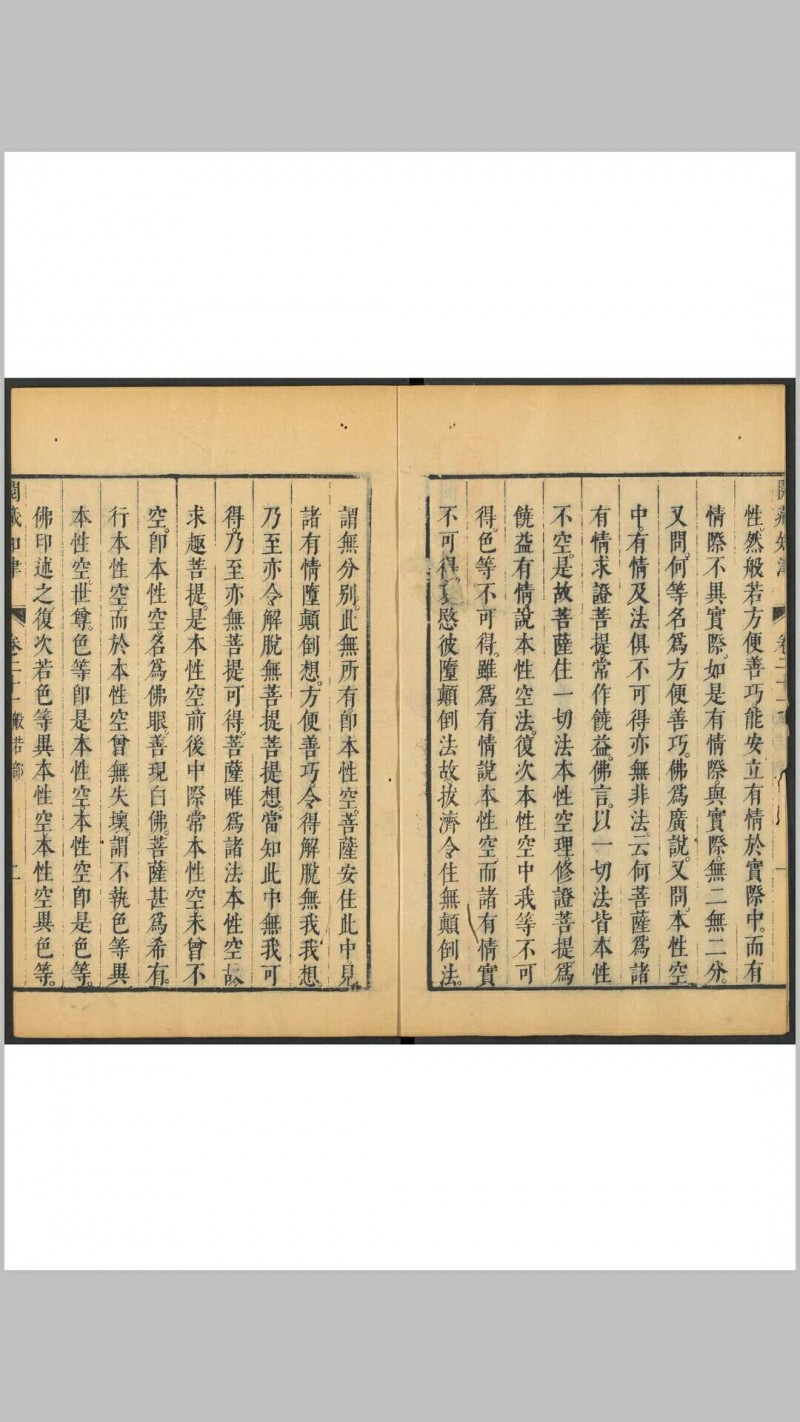 性。然般若方便善巧能安立有情於實際中。而有
情際不異實際。如是有情際與實際。無二無二分。
又問。何等名爲方便善巧。佛爲廣說。又問。本性空
中。有情及法俱不可得。亦無非法。云何菩薩爲諸
有情求證菩提。常作饒益。佛言。以一切法皆本性
不空。是故菩薩住一切法本性空理。修證菩提。爲
饒益有情說本性空法。復次本性空中。我等不可
得。色等不可得。雖爲有情說本性空。而諸有情實
不可得。哀愍彼墮顛倒法故。拔濟令住無顛倒法。
謂無分別。此無所有。卽本性空。菩薩安住此中。見
諸有情墮顛倒想。方便善巧。令得解脫無我我想。
乃至亦令解脫無菩提菩提想。當知此中無我可
得。乃至亦無菩提可得。菩薩唯爲諸法本性空故
求趣菩提。是本性空。前後中際。常本性空。未曾不
空。卽本性空。名爲佛眼。善現白佛。菩薩甚爲希有。
行本性空。而於本性空曾無失壞。謂不執色等異
本性空。世尊。色等卽是本性空。本性空卽是色等。
佛印述之。復次若色等異本性空。本性空異色等。
閱藏知津 卷二十一 般若部 二